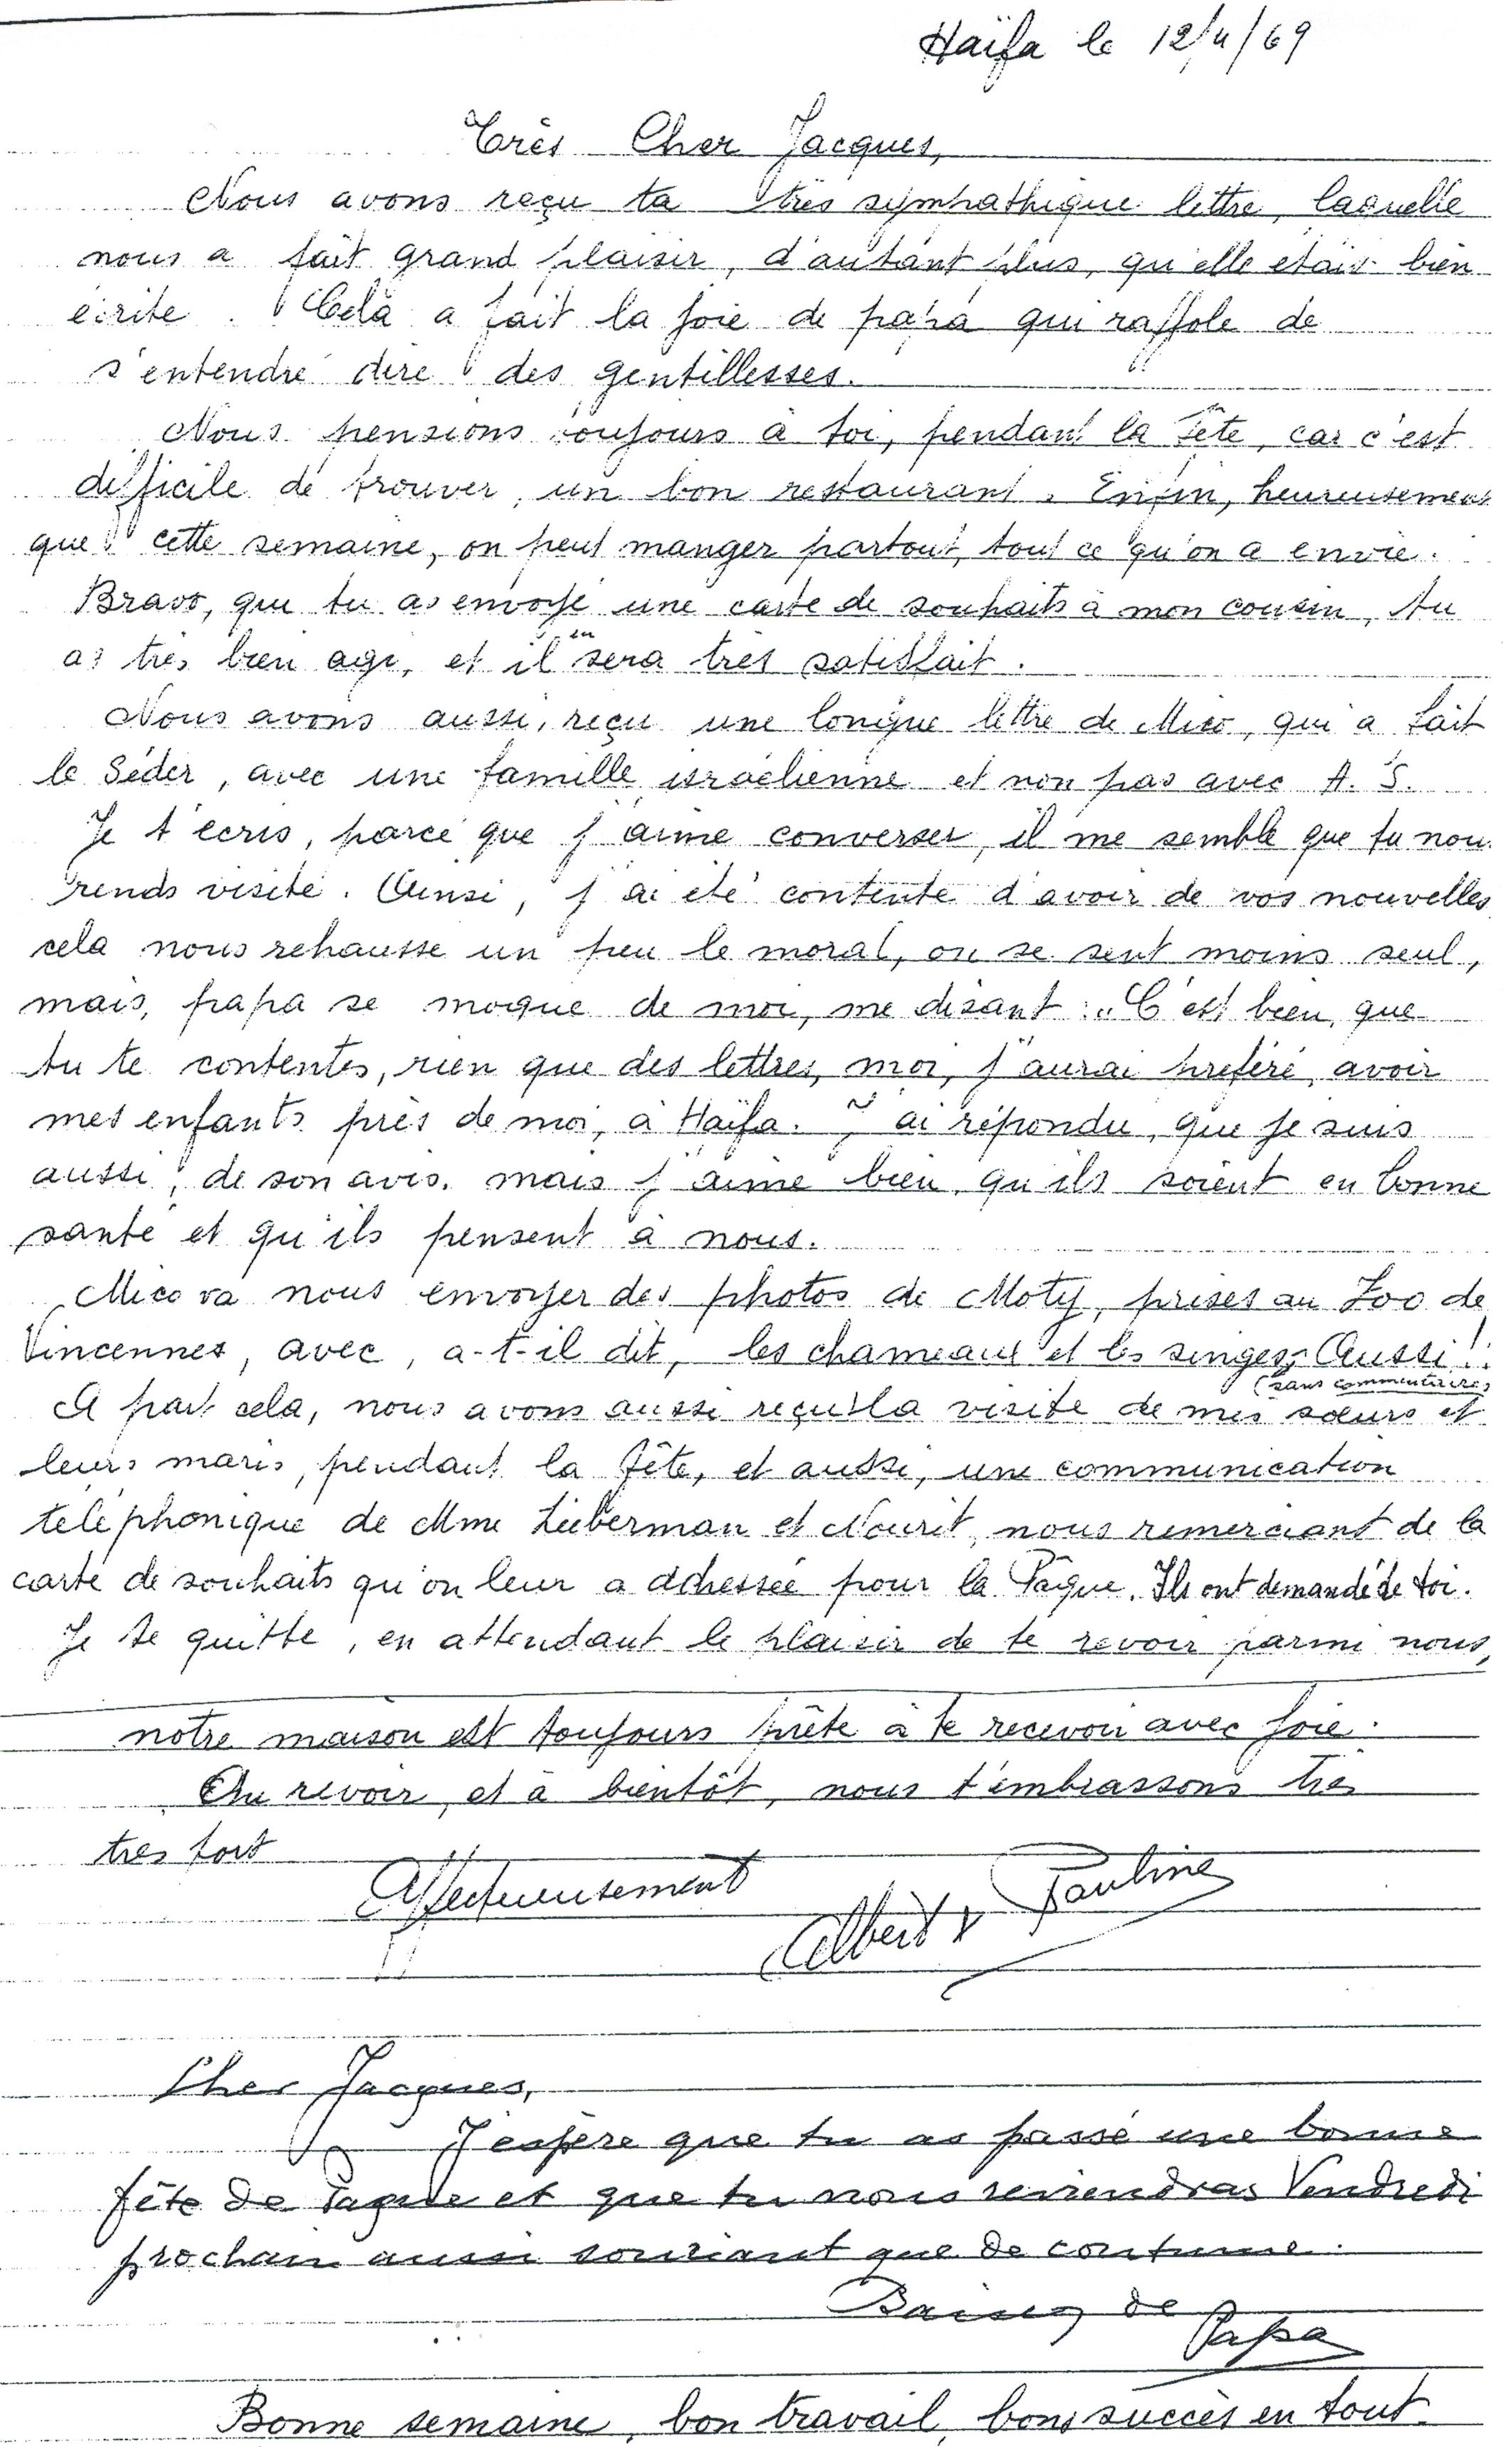 Haïfa le 12/4/69
Très Cher Jacques,
Nous avons reçu ta très sympathique lettre, laquelle
nous a fait grand plaisir, d'autant plus, qu'elle etais bien
écrite. Celà a fait la joie de papa qui raffole de
s'entendre dire des gentillesses.
Nous pensions toujours à toi, pendant la Fête, car c'est
difficile de trouver, un bon restaurant. Enfin, heureusement
que cette semaine, on peut manger partout, tout ce qu'on a envie.
Bravo, que tu as envoyé une carte de souhaits à mon cousin, tu
as très bien agi, et il en sera très satisfait.
Nous avons aussi, reçu une longue lettre de Mico, qui a fait
le Séder, avec une famille israélienne et non pas avec A. S.
Je t'écris, parce que j'aime converser, il me semble que tu nous
rends visite. Ainsi, j'ai été contente d'avoir de vos nouvelles
cela nous rehausse un peu le moral, on se sent moins seul,
mais, papa se moque de moi, me disant : "C'est bien, que
tu te contentes, rien que des lettres, moi, j'aurai préféré, avoir
mes enfants près de moi, à Haïfa. J'ai répondu, que je suis
aussi, de son avis, mais j'aime bien, qu'ils soient en bonne
santé et qu'ils pensent à nous.
Mico va nous envoyer des photos de Moty, prises au Zoo de
Vincennes, avec, a-t-il dit, les chameaux et les singes, Aussi!!
(sans commentaires)
A part cela, nous avons aussi reçu la visite de mes sœurs et
leurs maris, pendant la fête, et aussi, une communication
téléphonique de Mme Lieberman et Nourit, nous remerciant de la
carte de souhaits qu'on leur a adressée pour la Pâque. Ils ont demandé de toi.
Je te quitte, en attendant le plaisir de te revoir parmi nous,
notre maison est toujours prête à te recevoir avec joie.
Au revoir, et à bientôt, nous t'embrassons très
très fort
Affectueusement
Albert & Pauline
Cher Jacques,
J'espère que tu as passé une bonne
fête de Pâque et que tu nous reviendras Vendredi
prochain aussi souriant que de coutume.
Baisers de
Papa
Bonne semaine, bon travail, bons succès en tout.